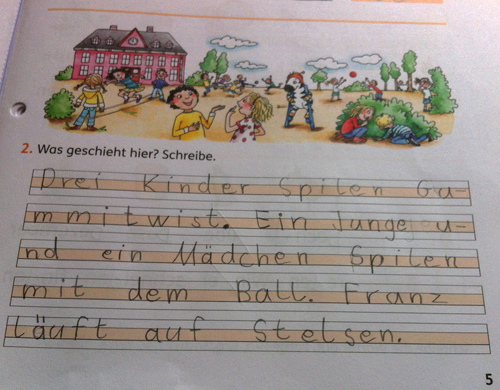 2. Was geschieht hier? Schreibe.
Drei Kinder Spilen Gu-
mmitwist. Ein Junge u-
nd ein Mädchen Spilen
mit dem Ball. Franz
läuft auf Stelsen.
5